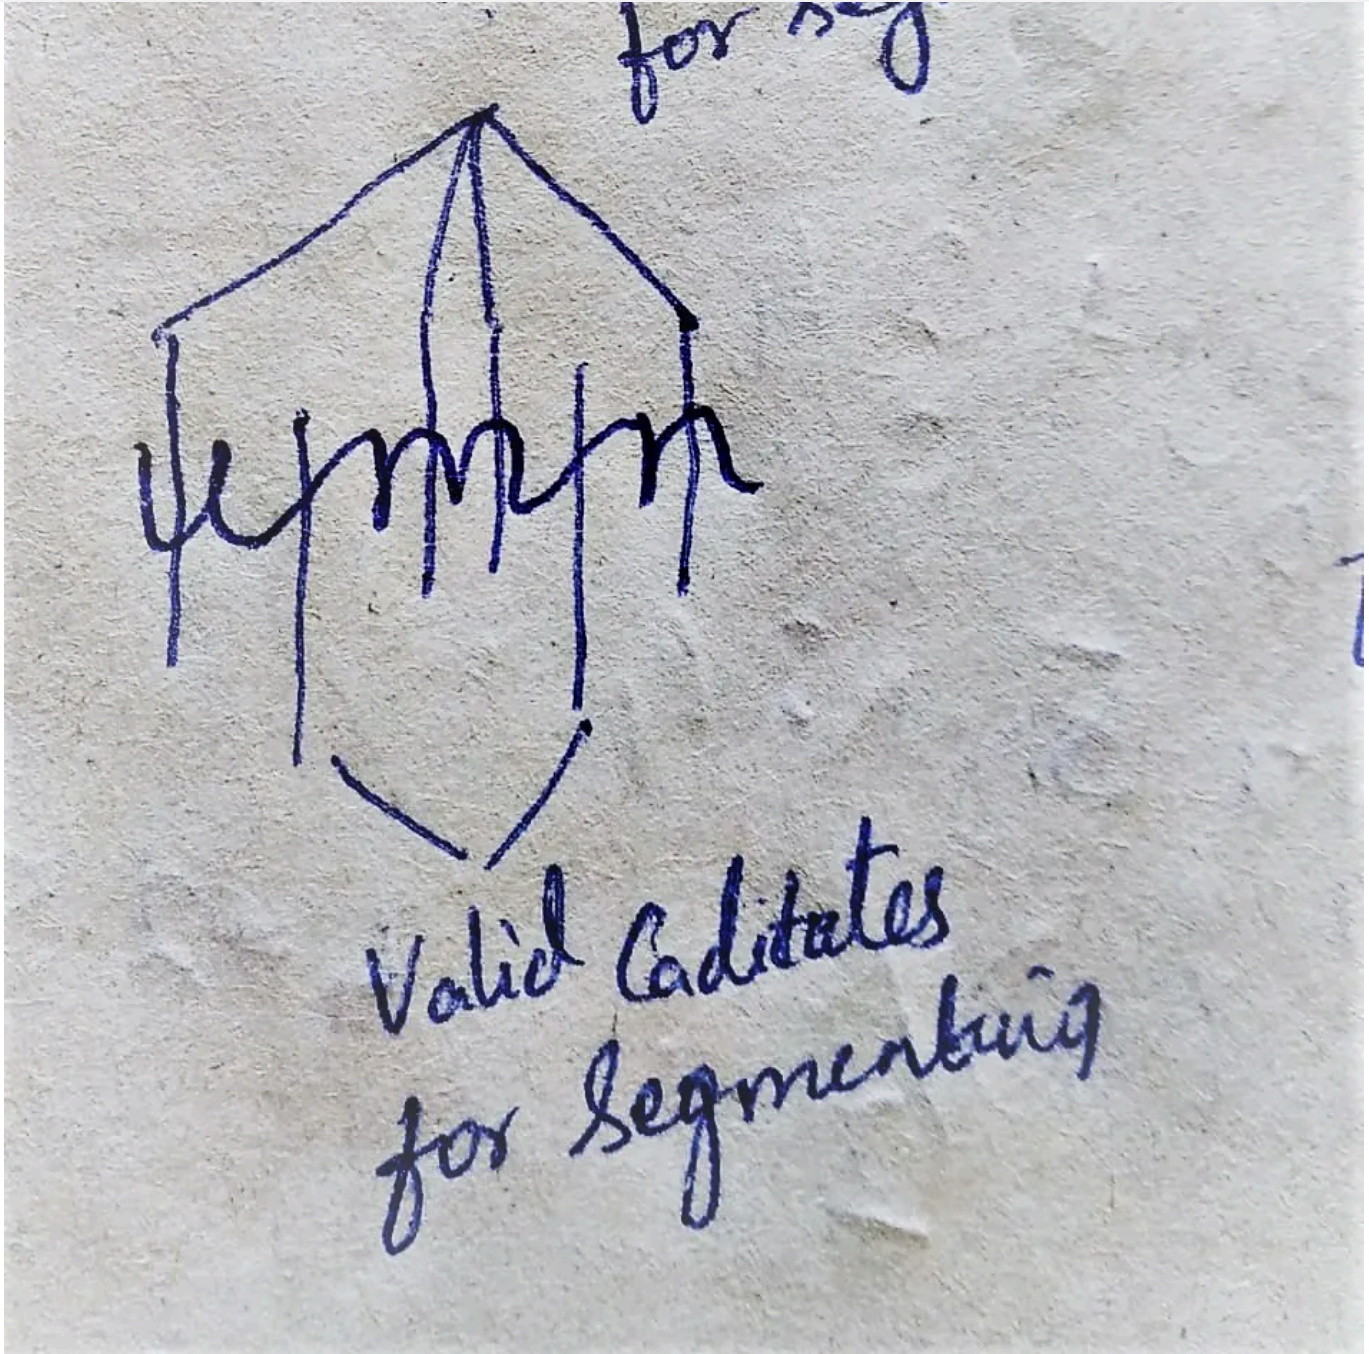 for seg
umn
Valid Caditates
for Segmenting